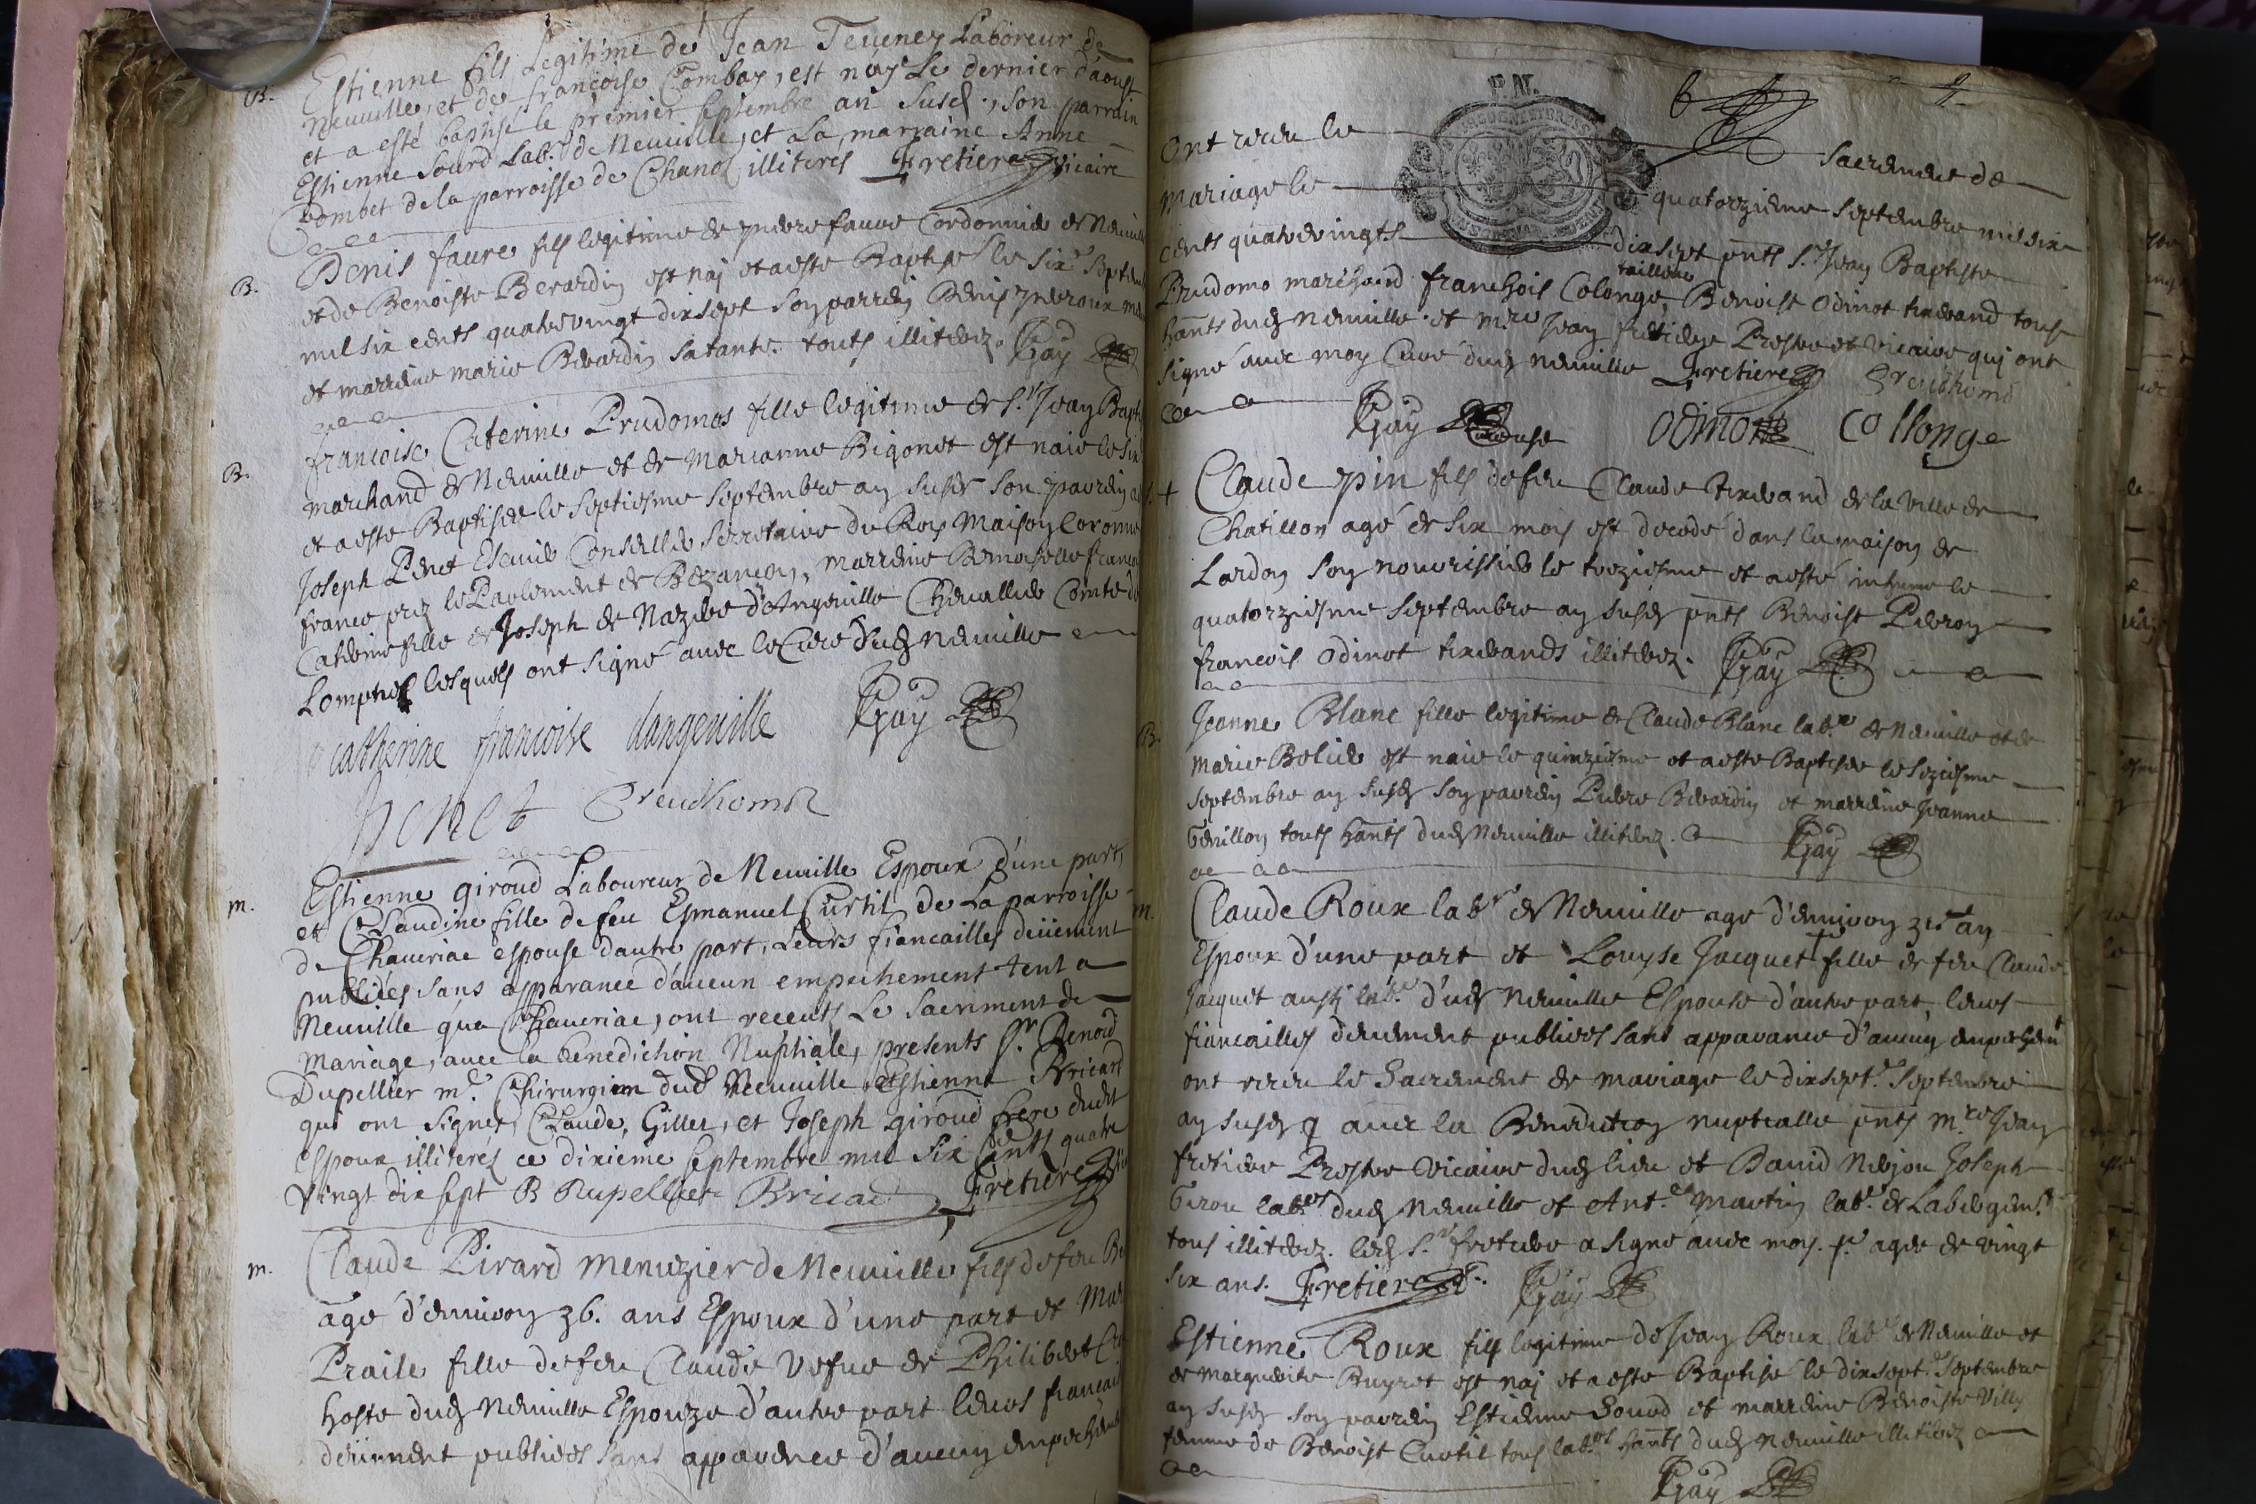 B. Estienne fils Legitime de Jean Teueney Laboreur de
Neuuille, et de françoise Combay, est nay Le dernier d'aoust
et a esté baptisé le premier septembre an susd., son parrain
Estienne Sourd Lab.r de Neuuille, et La marraine Anne
Combet de la parroisse de Chanoz illiterés Fretiere vicaire
B. Denis faure fils legitime de pierre faure Cordonnier de Neuuille
et de Benoiste Berardin est naj et a esté Baptisé le six.e septembre
mil six cents quatre vingt dix sept son parrein Denis
et marreine marie Berardin sa tante. touts illiterez. Gay
B. françoise Caterine Prudomos fille legitime de S.r Jean Bapte
marchand de Neuuille et de marianne Bigonet est naie le six
et a esté Baptisée le septiesme septembre an susd. son parrein
Joseph Penet Escuier Conseiller Secretaire du Roy Maison Coronne
france prez le Parlement de Bezançon, marreine Demoiselle francoise
Caterine fille de Joseph de Nazere d'Angeuille Cheuallier Comte de
Lompnes lesquels ont signé auec le Curé dud. Neuuille
catherine francoise dangeuille Gay
Penet Preudhomme
m. Estienne giroud Laboureur de Neuuille Espoux d'une part,
et Claudine fille de feu Esmanuel Curtil de La parroisse
de Chaueriac espouse d'autre part, Leurs fiancailles deüement
publiées sans apparance d'aucun empechement tent a
Neuuille qu'a Chaueriac, ont receuts Le sacrement de
Mariage, auec la benediction Nuptiale, presents S.r Benoid
Dupellier m.e Chirurgien dud. Neuuille et Estienne Bricard
qui ont signez, Claude, Gillet, et Joseph giroud frere dudit
Espoux illiterés ce dixieme septembre mil six cents quatre
Vingt dix sept B Rupellier Bricad Fretiere
m. Claude Pirard Menuzier de Neuuille fils de feu
agé d'enuiron 36. ans Espoux d'une part et
Praile fille de feu Claude Vefue de Philibert
hoste dud. Neuuille Espouze d'autre part leurs fiancailles
deüement publiées sans apparence d'aucun empechement
P.N. 6 4
Ont receu le sacrement de
mariage le quatorzieme septembre mil six
cents quatre vingts dix sept pnts S.r Jean Baptiste
tailleur
Prudomo marchand franchois Colonge, Benoist Odinot tixerand tous
hants dud. Neuuille et m.re Jean fretiere Prestre et Vicaire qui ont
signé auec moy Curé dud. Neuuille Fretiere Preudhome
Gay Odinot Collonge
+ Claude pin fils de feu Claude tixerand de la Ville de
Chatillon agé de six mois est decedé dans la maison de
Lardon son nourrissier le treziesme et a esté inhumé le
quatorziesme septembre an susd. pnts Benoist Perron
françois Odinot tixerands illiterez. Gay
B. Jeanne Blanc fille legitime de Claude Blanc lab.r de Neuuille et de
Marie Belier est naie le quinziesme et a esté Baptisée le seziesme
septembre an susd. son parrein Pierre Berardin et marreine Jeanne
Geuillon touts hants dud. Neuuille illiterez. Gay
m. Claude Roux lab.r de Neuuille agé d'enuiron an
Espoux d'une part et Louyse Jacquet + fille de feu Claude
Jacquet aussi lab.r dud. Neuuille Espouse d'autre part, leurs
fiancailles deuement publiées sans apparance d'aucun empechemt
ont receu le Sacrement de mariage le dixsept.e septembre
an susd. auec la Benediction nuptialle pnts m.re Jean
fretiere Prestre Vicaire dud. lieu et Dauid Joseph
Girou lab.rs dud. Neuuille et Ant.e Martin lab.r de
tous illiterez. led. S.r fretiere a signé auec moy. + agée de vingt
six ans. Fretiere Gay
Estienne Roux fils legitime de Jean Roux lab.r de Neuuille et
de Marguerite Buyret est naj et a esté Baptisé le dixsept.e septembre
an susd. son parrein Estienne Sourd et marreine Benoiste Villy
femme de Benoist Curtil tous lab.rs hants dud. Neuuille illiterez
Gay